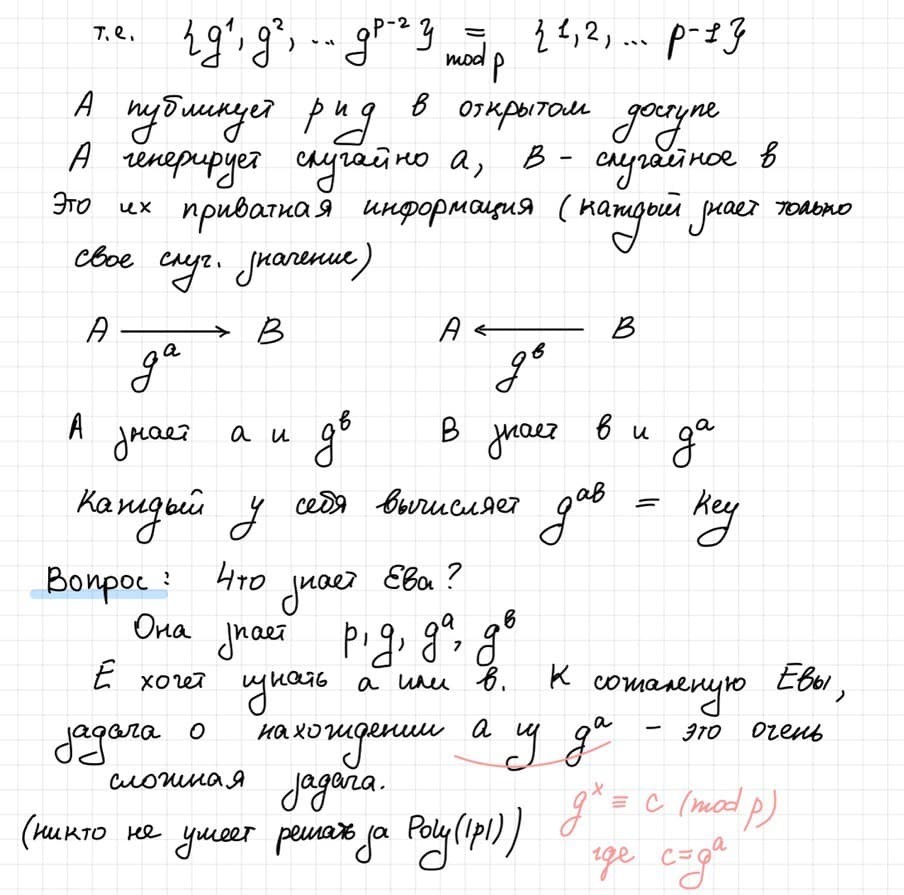 т.е. {g¹, g², ... gᵖ⁻²} = mod p {1, 2, ... p-1}
А публикует p и g в открытом доступе
А генерирует случайно a, В - случайное b
Это их приватная информация (каждый знает только
свое случ. значение)
A → B A ← B
gᵃ gᵇ
А знает a и gᵇ В знает b и gᵃ
Каждый у себя вычисляет gᵃᵇ = key
Вопрос: Что знает Ева?
Она знает p, g, gᵃ, gᵇ
Е хочет узнать a или b. К сожаленую Евы,
задача о нахождении a из gᵃ - это очень
сложная задача.
(никто не умеет решать за Poly(|p|))
gˣ ≡ c (mod p)
где c=gᵃ